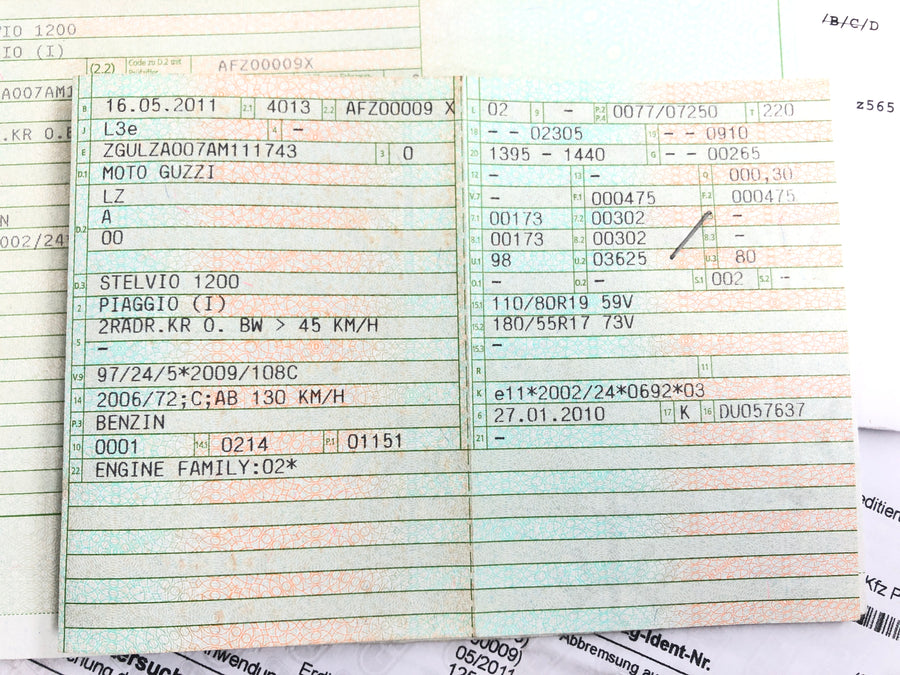 VIO 1200
IO (I)
(2.2) Code zu D.2 mit AFZ00009X
A007AM1
.KR O.B
002/24*
/B/C/D
z565
B 16.05.2011 2.1 4013 2.2 AFZ00009 X
J L3e 4 –
E ZGULZA007AM111743 3 0
D.1 MOTO GUZZI
LZ
D.2 A
00
D.3 STELVIO 1200
2 PIAGGIO (I)
5 2RADR.KR O. BW > 45 KM/H
–
V.9 97/24/5*2009/108C
14 2006/72;C;AB 130 KM/H
P.3 BENZIN
10 0001 14.1 0214 P.1 01151
22 ENGINE FAMILY:02*
L 02 9 – P.2 P.4 0077/07250 T 220
18 – – 02305 19 – – 0910
20 1395 – 1440 G – – 00265
12 – 13 – Q 000,30
V.7 – F.1 000475 F.2 000475
7.1 00173 7.2 00302 –
8.1 00173 8.2 00302 8.3 –
U.1 98 U.2 03625 U.3 80
O.1 – O.2 – S.1 002 S.2 –
15.1 110/80R19 59V
15.2 180/55R17 73V
15.3 –
R 11
K e11*2002/24*0692*03
6 27.01.2010 17 K 16 DU057637
21 –
editier
Kfz P
g-Ident-Nr.
Abbremsung au
00009)
05/2011
125
tersuch
nwendun
Erdi
hung d